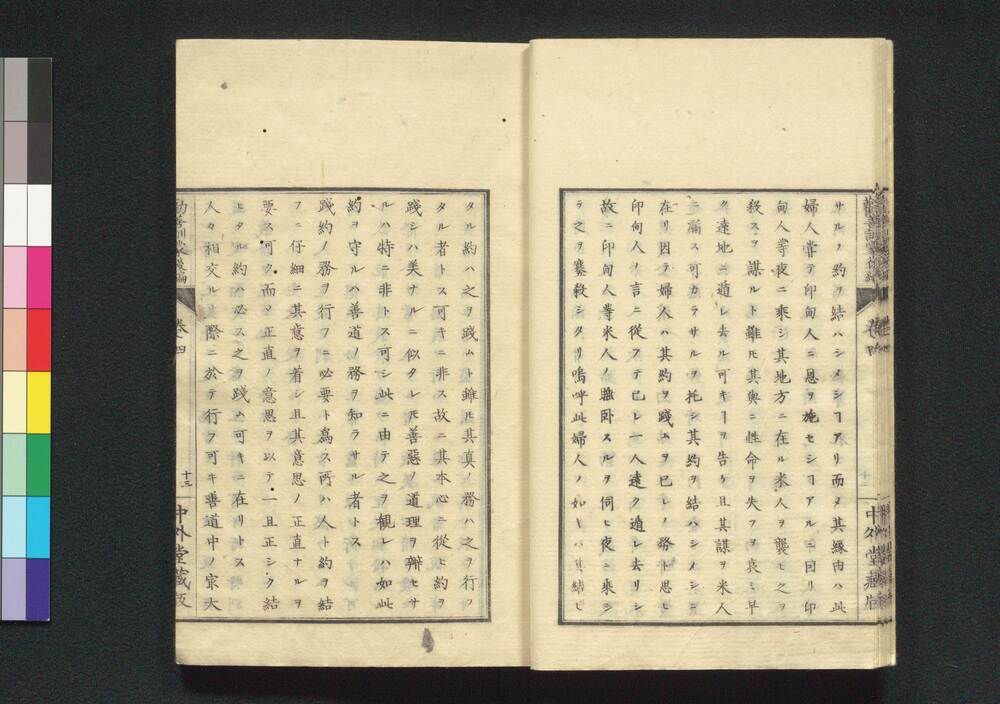 サルノ約ヲ結ハシメシヿアリ而メ其縁由ハ此
婦人嘗テ印甸人ニ恩ヲ施セシヿアルニ因リ印
甸人等夜ニ乘シ其地方ニ在ル米人ヲ襲ヒ之ヲ
殺スヲ謀ルト雖𪜈其輿ニ性命ヲ失フヲ哀ミ早
ク遠地ニ遁レ去ル可キヿヲ告ケ且其謀ヲ米人
ニ漏ス可カラサルヲ托シ其約ヲ結ハシメシニ
在リ因テ婦人ハ其約ヲ踐ムヲ己レノ務ト思ヒ
印甸人ノ言ニ從フテ己レ一人遠ク遁レ去リシ
故ニ印甸人等米人ノ臨卧スルヲ伺ヒ夜ニ乘シ
テ之ヲ襲殺シタリ嗚呼此婦人ノ如キハ其結ヒ
タル約ハ之ヲ踐ムト雖𪜈其真ノ務ハ之ヲ行フ
タル者トス可キニ非ス故ニ其本心ニ從ヒ約ヲ
踐シハ美ナルニ似タレ𪜈善惡ノ道理ヲ辨セサ
ルハ特ニ非トス可シ此ニ由テ之ヲ観レハ如此
約ヲ守ルハ善道ノ務ヲ知ラサル者トス
踐約ノ務ヲ行フニ必要ト爲ス所ハ人ト約ヲ結
フニ仔細ニ其意ヲ着シ且其意思ノ正直ナルヲ
要ス可ク而メ正直ノ意思ヲ以テ一旦正シク結
ヒタル約ハ必ス之ヲ踐ム可キニ在リトス
人々相交ルノ際ニ於テ行フ可キ善道中ノ宗大
卷四
十三
中外堂藏版